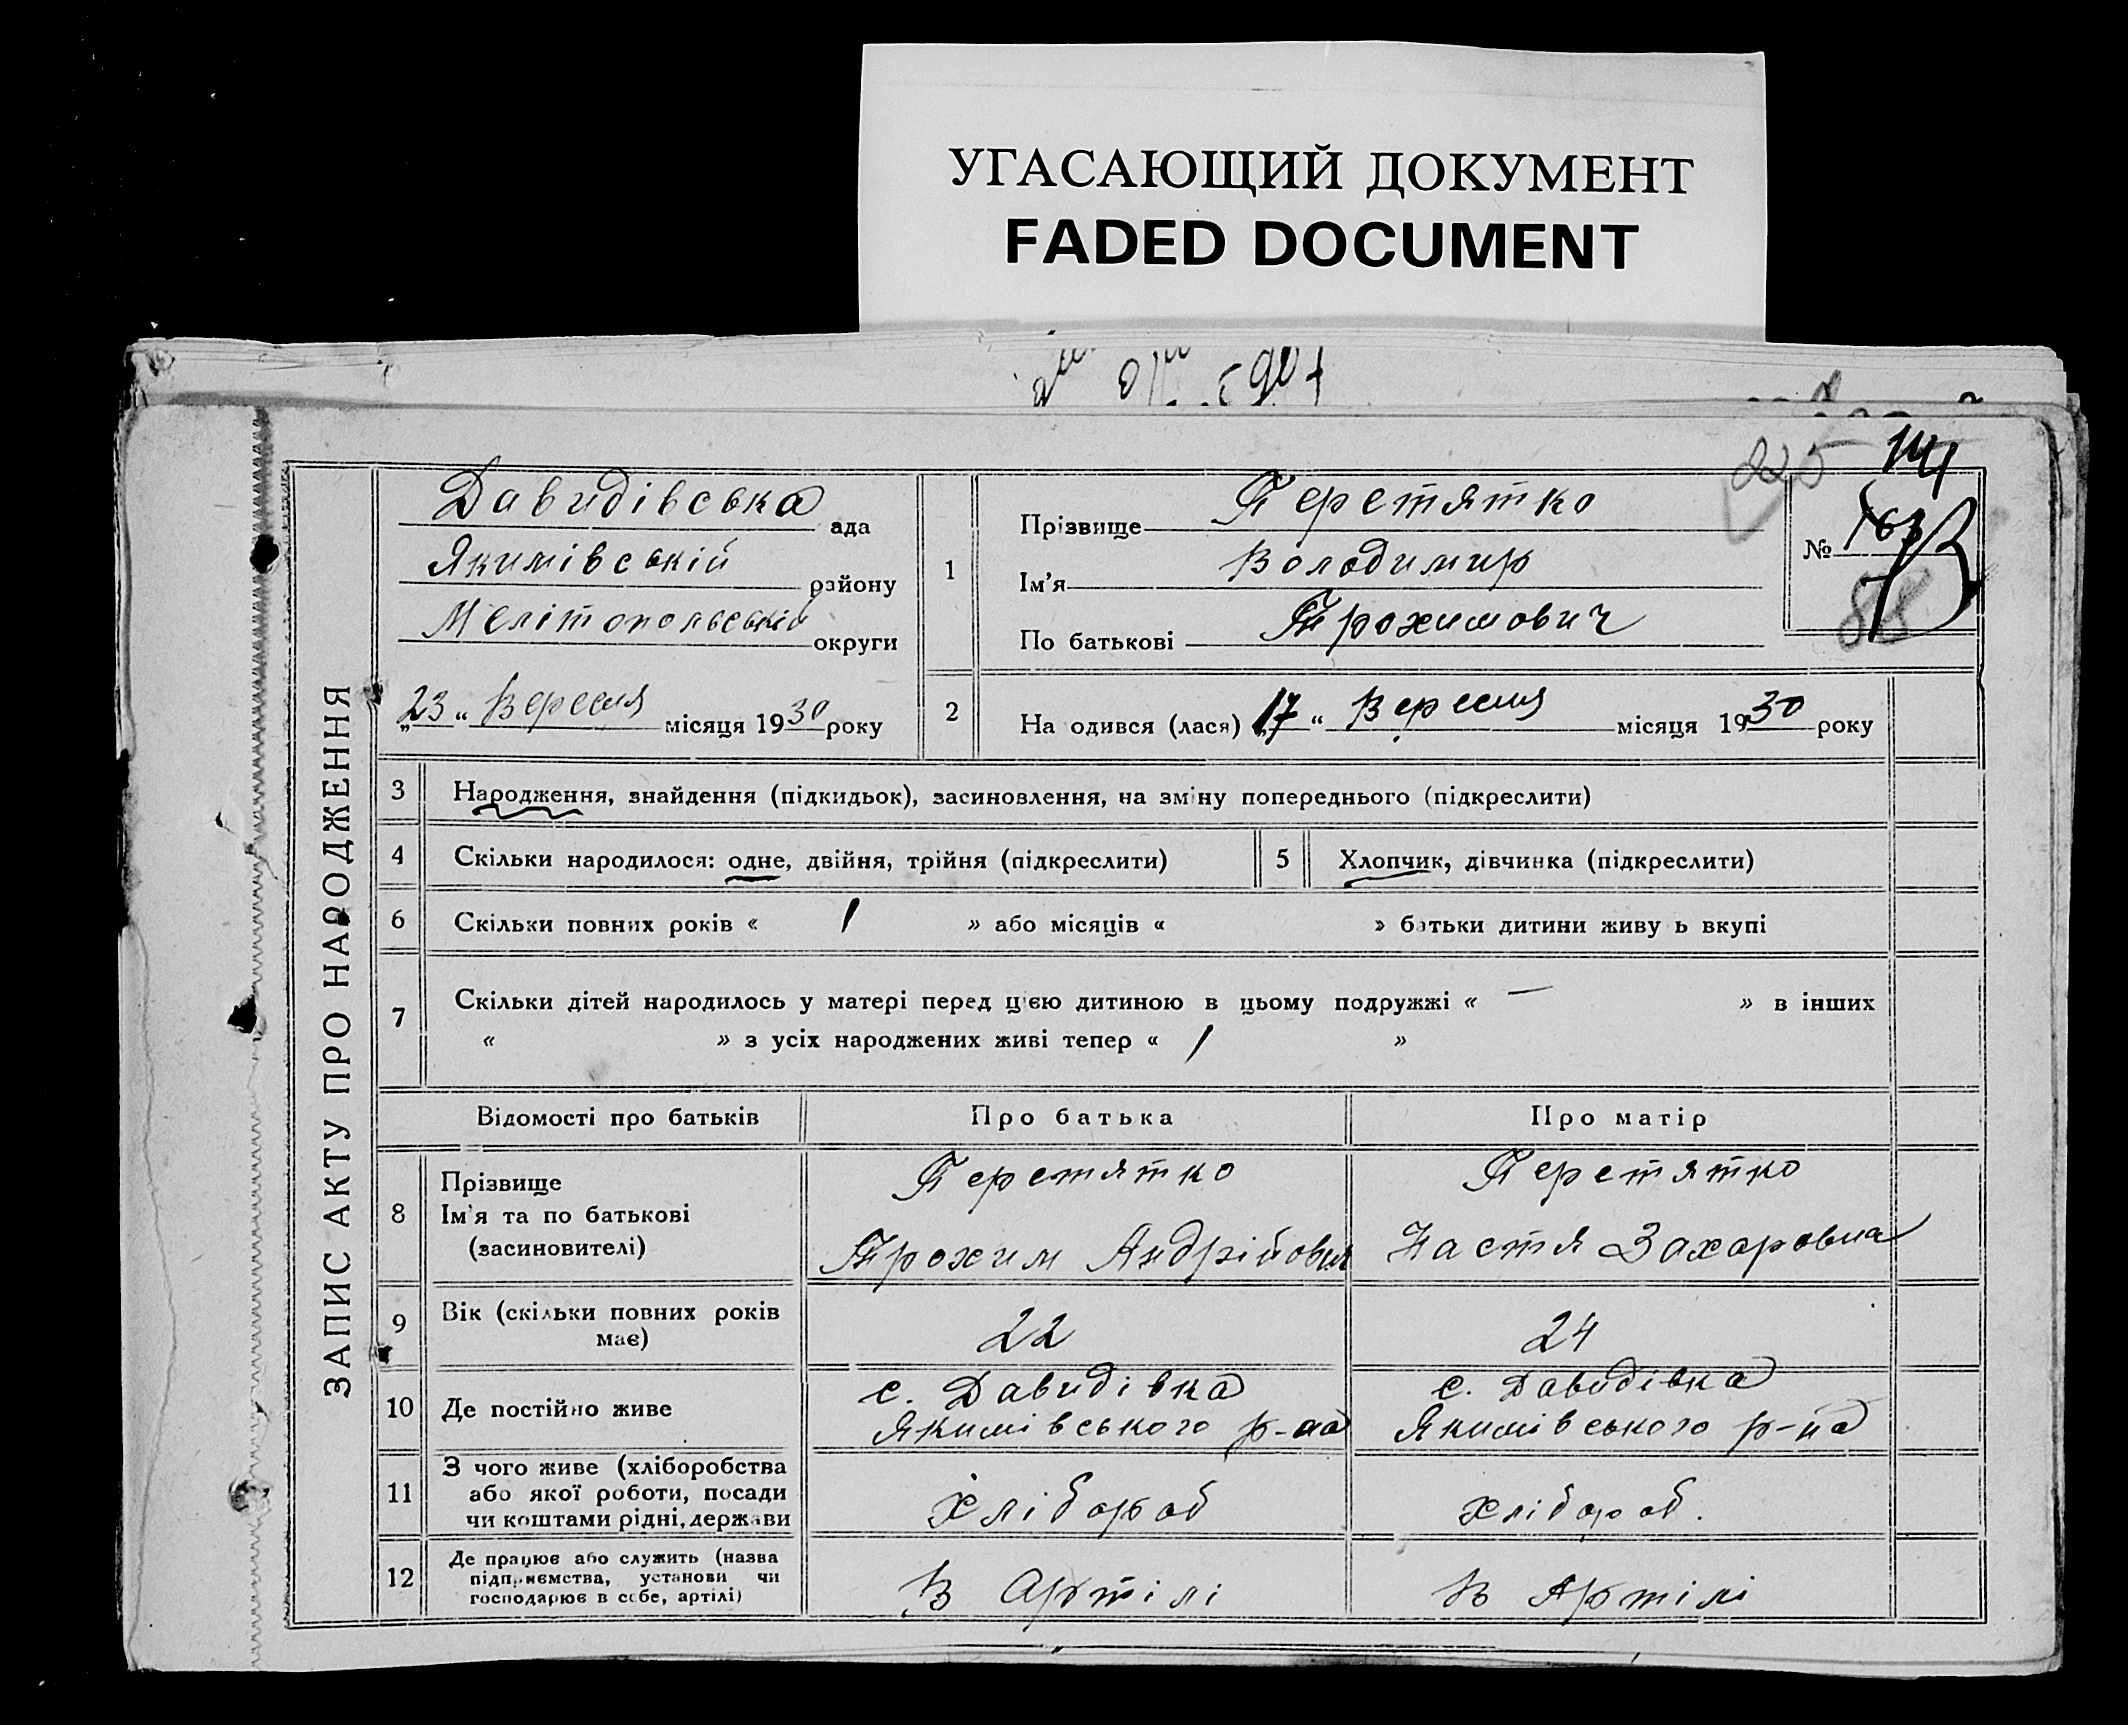 УГАСАЮЩИЙ ДОКУМЕНТ
FADED DOCUMENT
ЗАПИС АКТУ ПРО НАРОДЖЕННЯ
Давидівська ада
Якимівській району
Мелітопольській округи
„23“ Вересня місяця 1930 року
225
141
№ 163
88
1
Прізвище Перетятко
Ім'я Володимир
По батькові Трохимович
2 На одився (лася) „17“ Вересня місяця 1930 року
3 Народження, знайдення (підкидьок), засиновлення, на зміну попереднього (підкреслити)
4 Скільки народилося: одне, двійня, трійня (підкреслити) 5 Хлопчик, дівчинка (підкреслити)
6 Скільки повних років « 1 » або місяців « » батьки дитини живу ь вкупі
7 Скільки дітей народилось у матері перед цією дитиною в цьому подружжі « — » в інших
« » з усіх народжених живі тепер « 1 »
Відомості про батьків Про батька Про матір
8 Прізвище Ім'я та по батькові (засиновителі)
Перетятко Трохим Андрійович
Перетятко Настя Захаровна
9 Вік (скільки повних років має) 22 24
10 Де постійно живе
с. Давидівка Якимівського р-на
с. Давидівка Якимівського р-на
11 З чого живе (хліборобства
або якої роботи, посади
чи коштами рідні, держави
Хлібороб
хлібороб.
12 Де працює або служить (назва
підприємства, установи чи
господарює в себе, артілі)
В Артілі
В Артілі